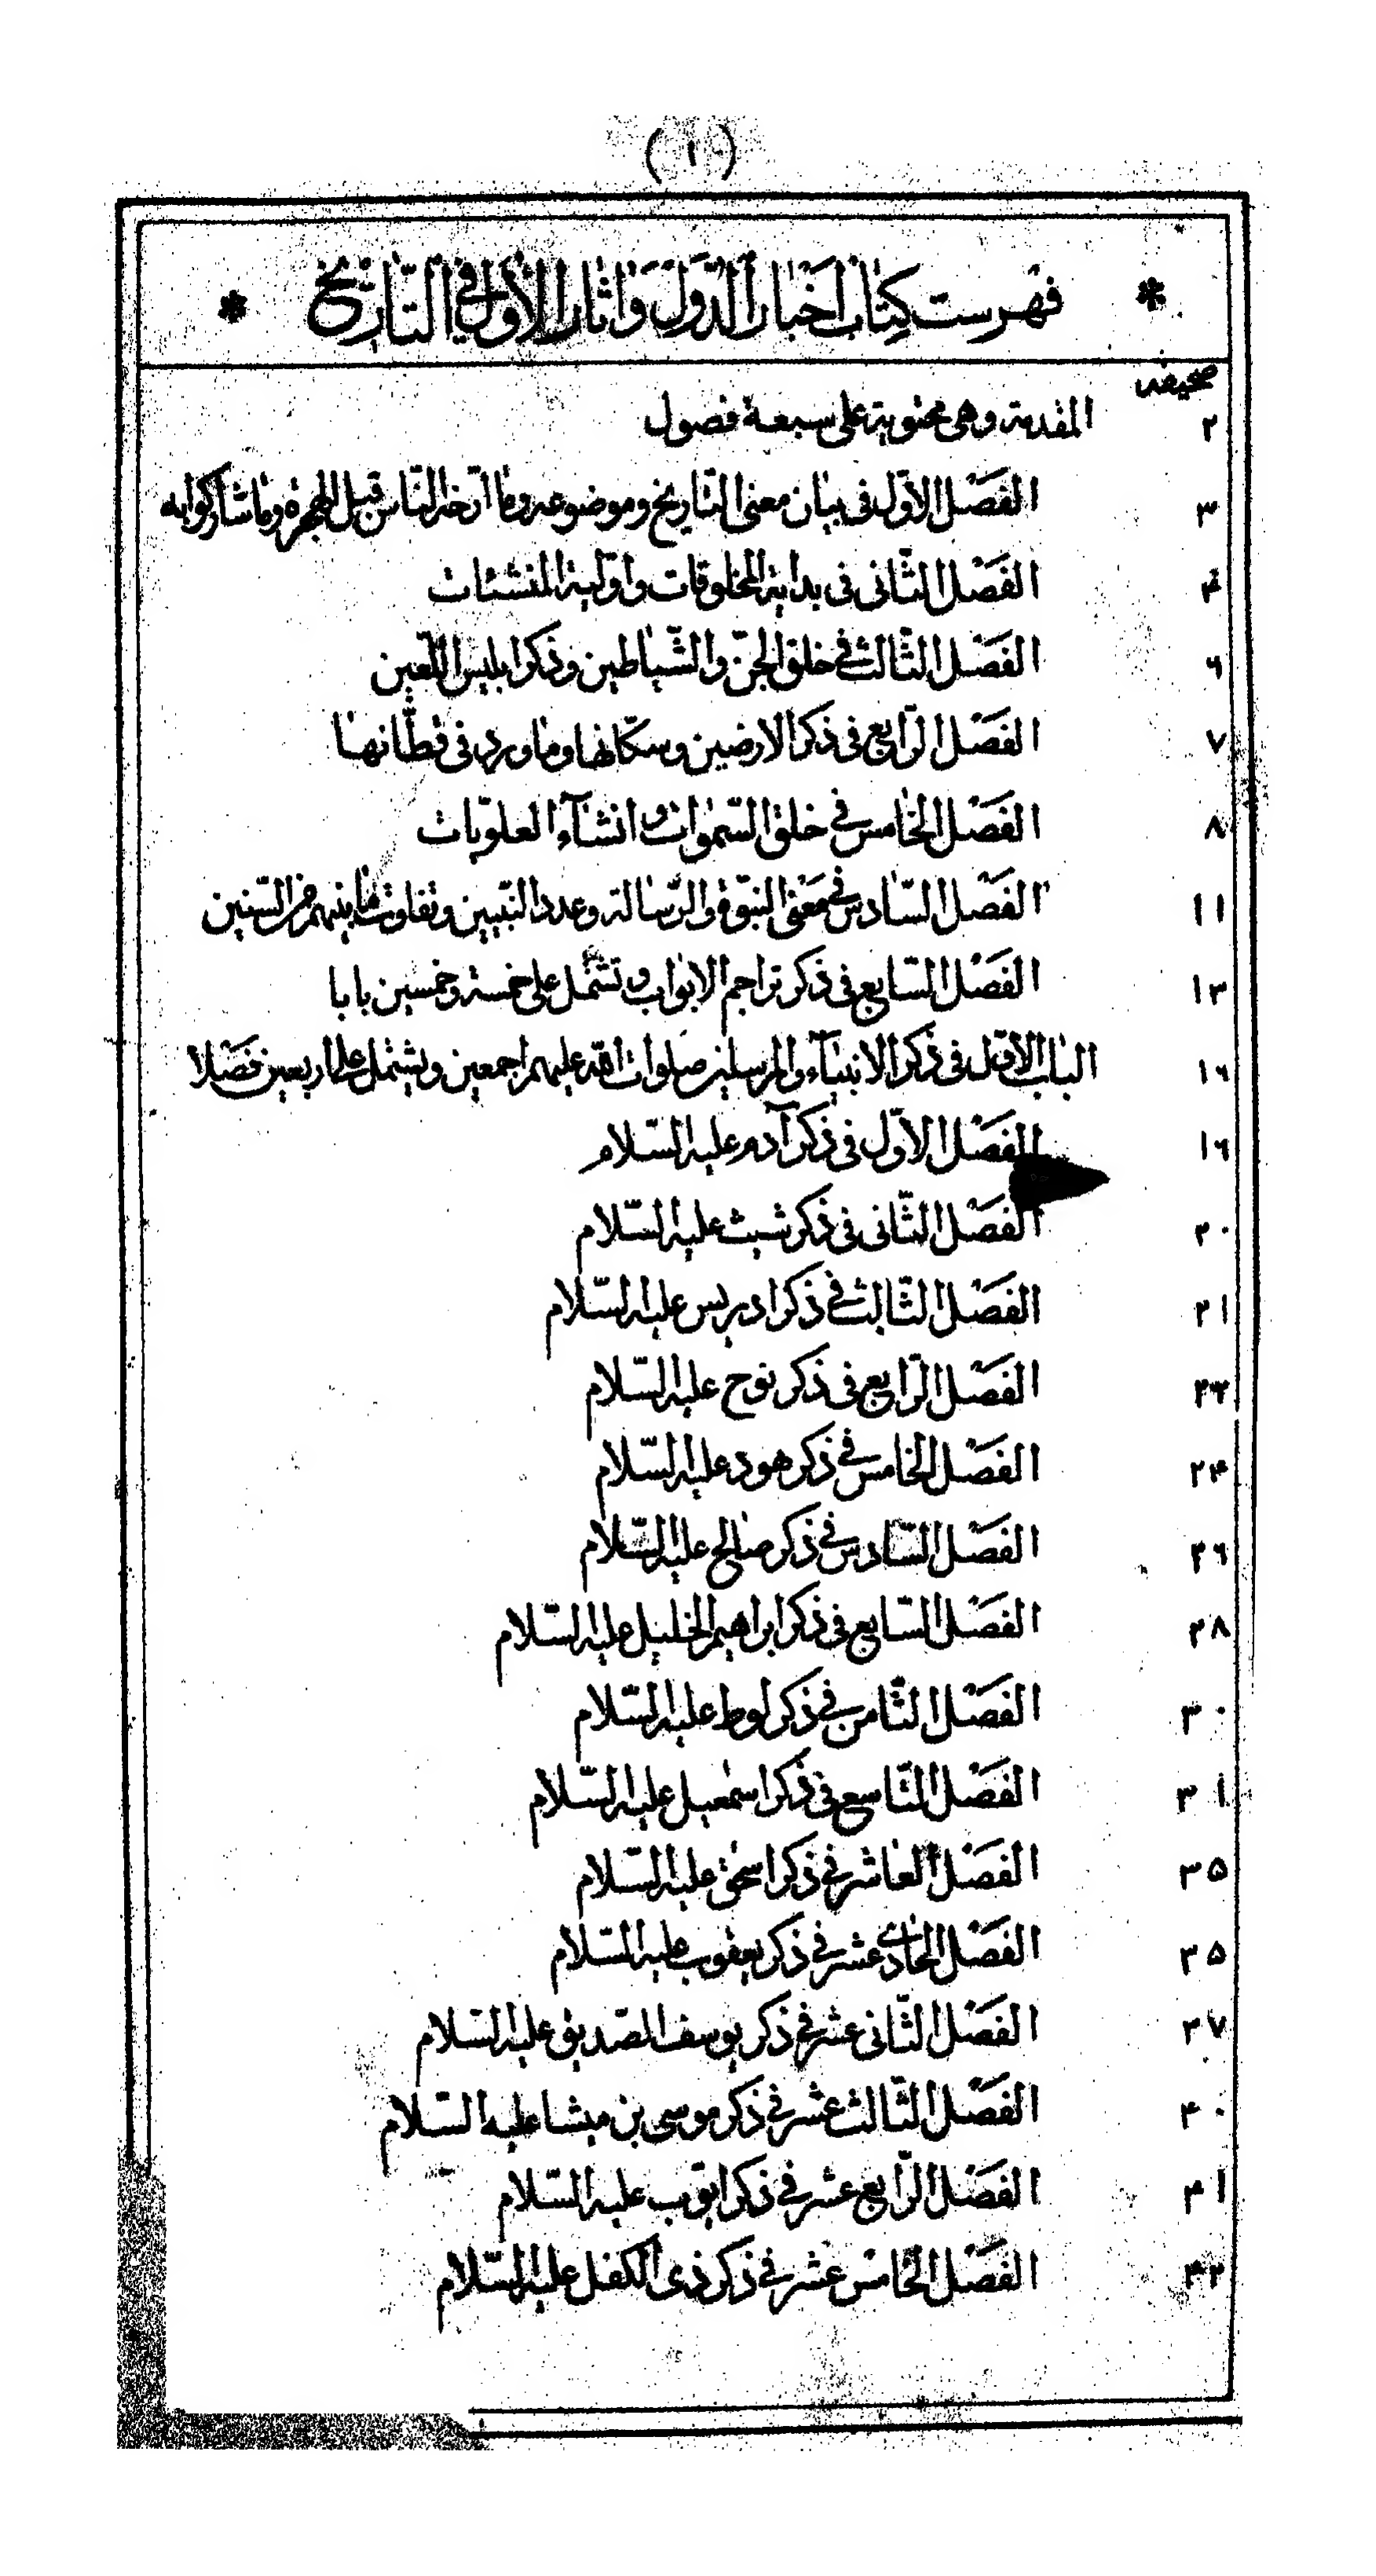 (١)
* فهرست كِتاب اَخبار الدُّوَل وَاٰثار الاُوَل فى التّاريخ *
صحيفه
٢ المقدمة وهى محتوية على سبعة فصول
٣ الفَصْل الاوّل فى بيان معنى التّاريخ وموضوعه وما ارّخه النّاس قبل الهجرة وما شاركوا به
٤ الفَصْل الثّانى فى بداية المخلوقات واوّلية المنشئات
٦ الفَصْل الثّالث فى خلق الجنّ والشّياطين وذكر ابليس اللّعين
٧ الفَصْل الرّابع فى ذكر الارضين وسكّانها وما ورد فى قطّانها
٨ الفَصْل الخامس فى خلق السّموات وانشآء العلويّات
١١ الفَصْل السّادس فى مَعْنى النبوّة والرّسالة وعدد النّبيين وتفاوت ما بينهم من السّنين
١٣ الفَصْل السّابع فى ذكر تراجم الابواب وتشتمل على خمسة وخمسين بابا
١٦ الباب الاوّل فى ذكر الانبيآء والمرسلين صلوات الله عليهم اجمعين ويشتمل على اربعين فَصْلا
١٦ الفَصْل الاوّل فى ذكر آدم عليه السّلام
٢٠ الفَصْل الثّانى فى ذكر شيث عليه السّلام
٢١ الفَصْل الثّالث فى ذكر ادريس عليه السّلام
٢٢ الفَصْل الرّابع فى ذكر نوح عليه السّلام
٢٤ الفَصْل الخامس فى ذكر هود عليه السّلام
٢٦ الفَصْل السّادس فى ذكر صالح عليه السّلام
٢٨ الفَصْل السّابع فى ذكر ابراهيم الخليل عليه السّلام
٣٠ الفَصْل الثّامن فى ذكر لوط عليه السّلام
٣١ الفَصْل التّاسع فى ذكر اسمٰعيل عليه السّلام
٣٥ الفَصْل العاشر فى ذكر اسحٰق عليه السّلام
٣٥ الفَصْل الحادى عشر فى ذكر يعقوب عليه السّلام
٣٧ الفَصْل الثّانى عشر فى ذكر يوسف الصّديق عليه السّلام
٤٠ الفَصْل الثّالث عشر فى ذكر موسى بن ميشا عليه السّلام
٤١ الفَصْل الرّابع عشر فى ذكر ايّوب عليه السّلام
٤٢ الفَصْل الخامس عشر فى ذكر ذى الكفل عليه السّلام